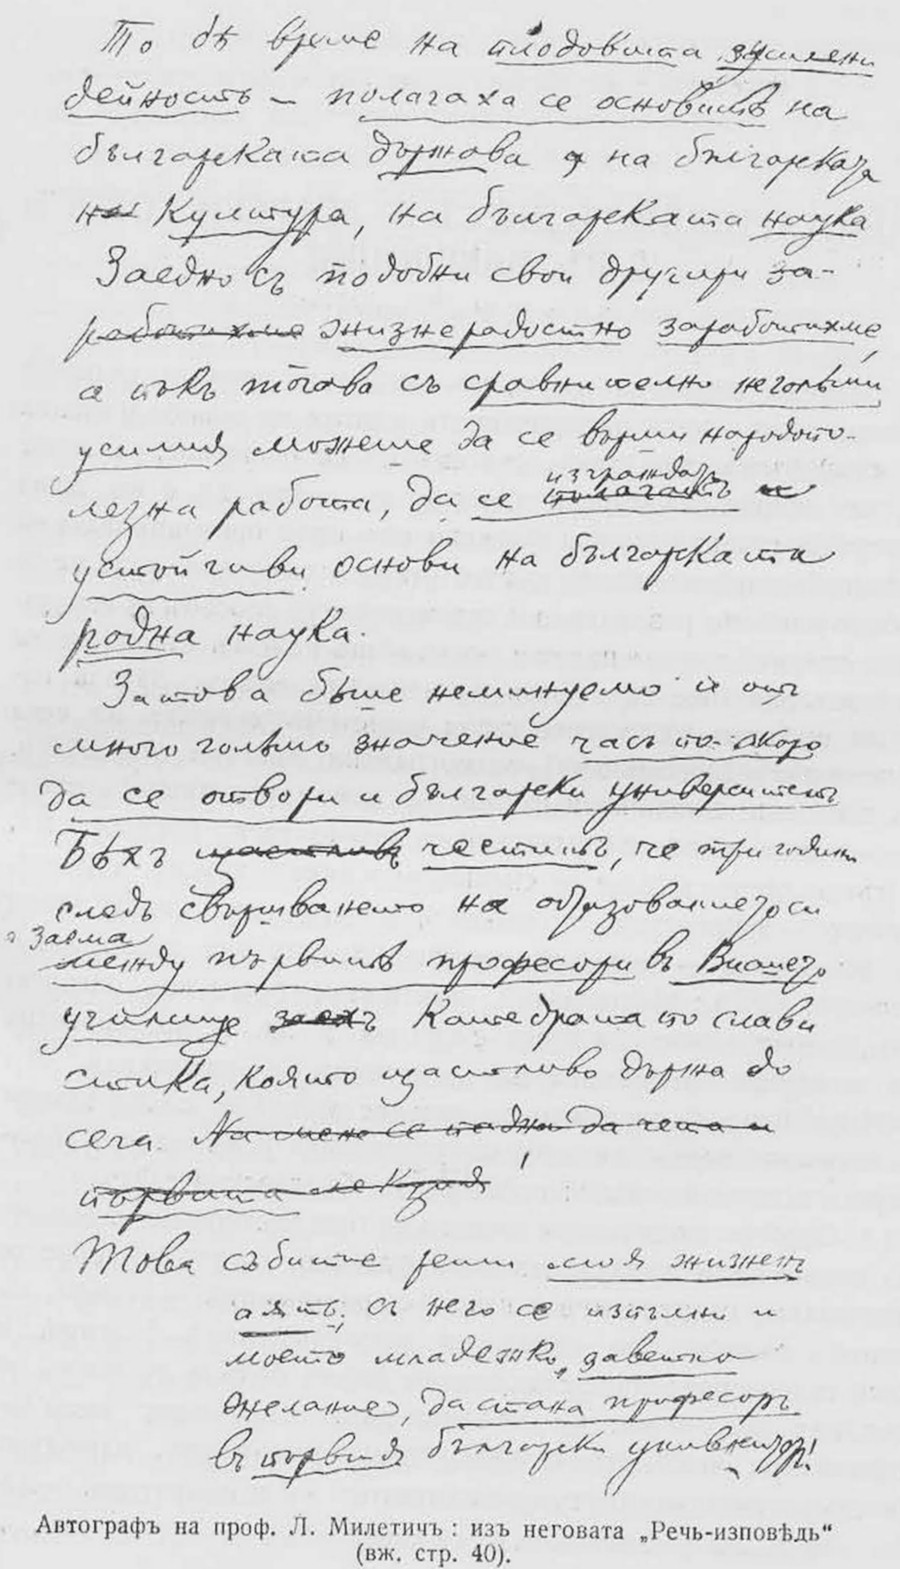 То бѣ време на плодовита усилени
дейность – полагаха се основитѣ на
българската държава и на българската
на култура, на българската наука
Заедно съ подобни свои другари за-
работихме жизнерадостно заработихме
а пъкъ тогава съ сравнително неголѣми
усилия можеше да се върши народопо-
лезна работа, да се изграждатъ полагатъ и
устойчиви основи на българската
родна наука.
Затова бѣше неминуемо и отъ
много голѣмо значение часъ по-скоро
да се отвори и български университетъ
Бѣхъ щастливъ честитъ, че три години
следъ свършването на образованието си
заема
между първитѣ професори въ Висшето
училище заехъ Катедрата по слави
стика, която щастливо държа до
сега. На мене се падна да чета и
първата лекция!
Това събитие реши моя жизненъ
пѫть. Съ него се изпълни и
моето младежко, заветно
желание, да стана професоръ
въ първия български унив.
Автографъ на проф. Л. Милетичъ: изъ неговата „Речь-изповѣдь“
(вж. стр. 40).